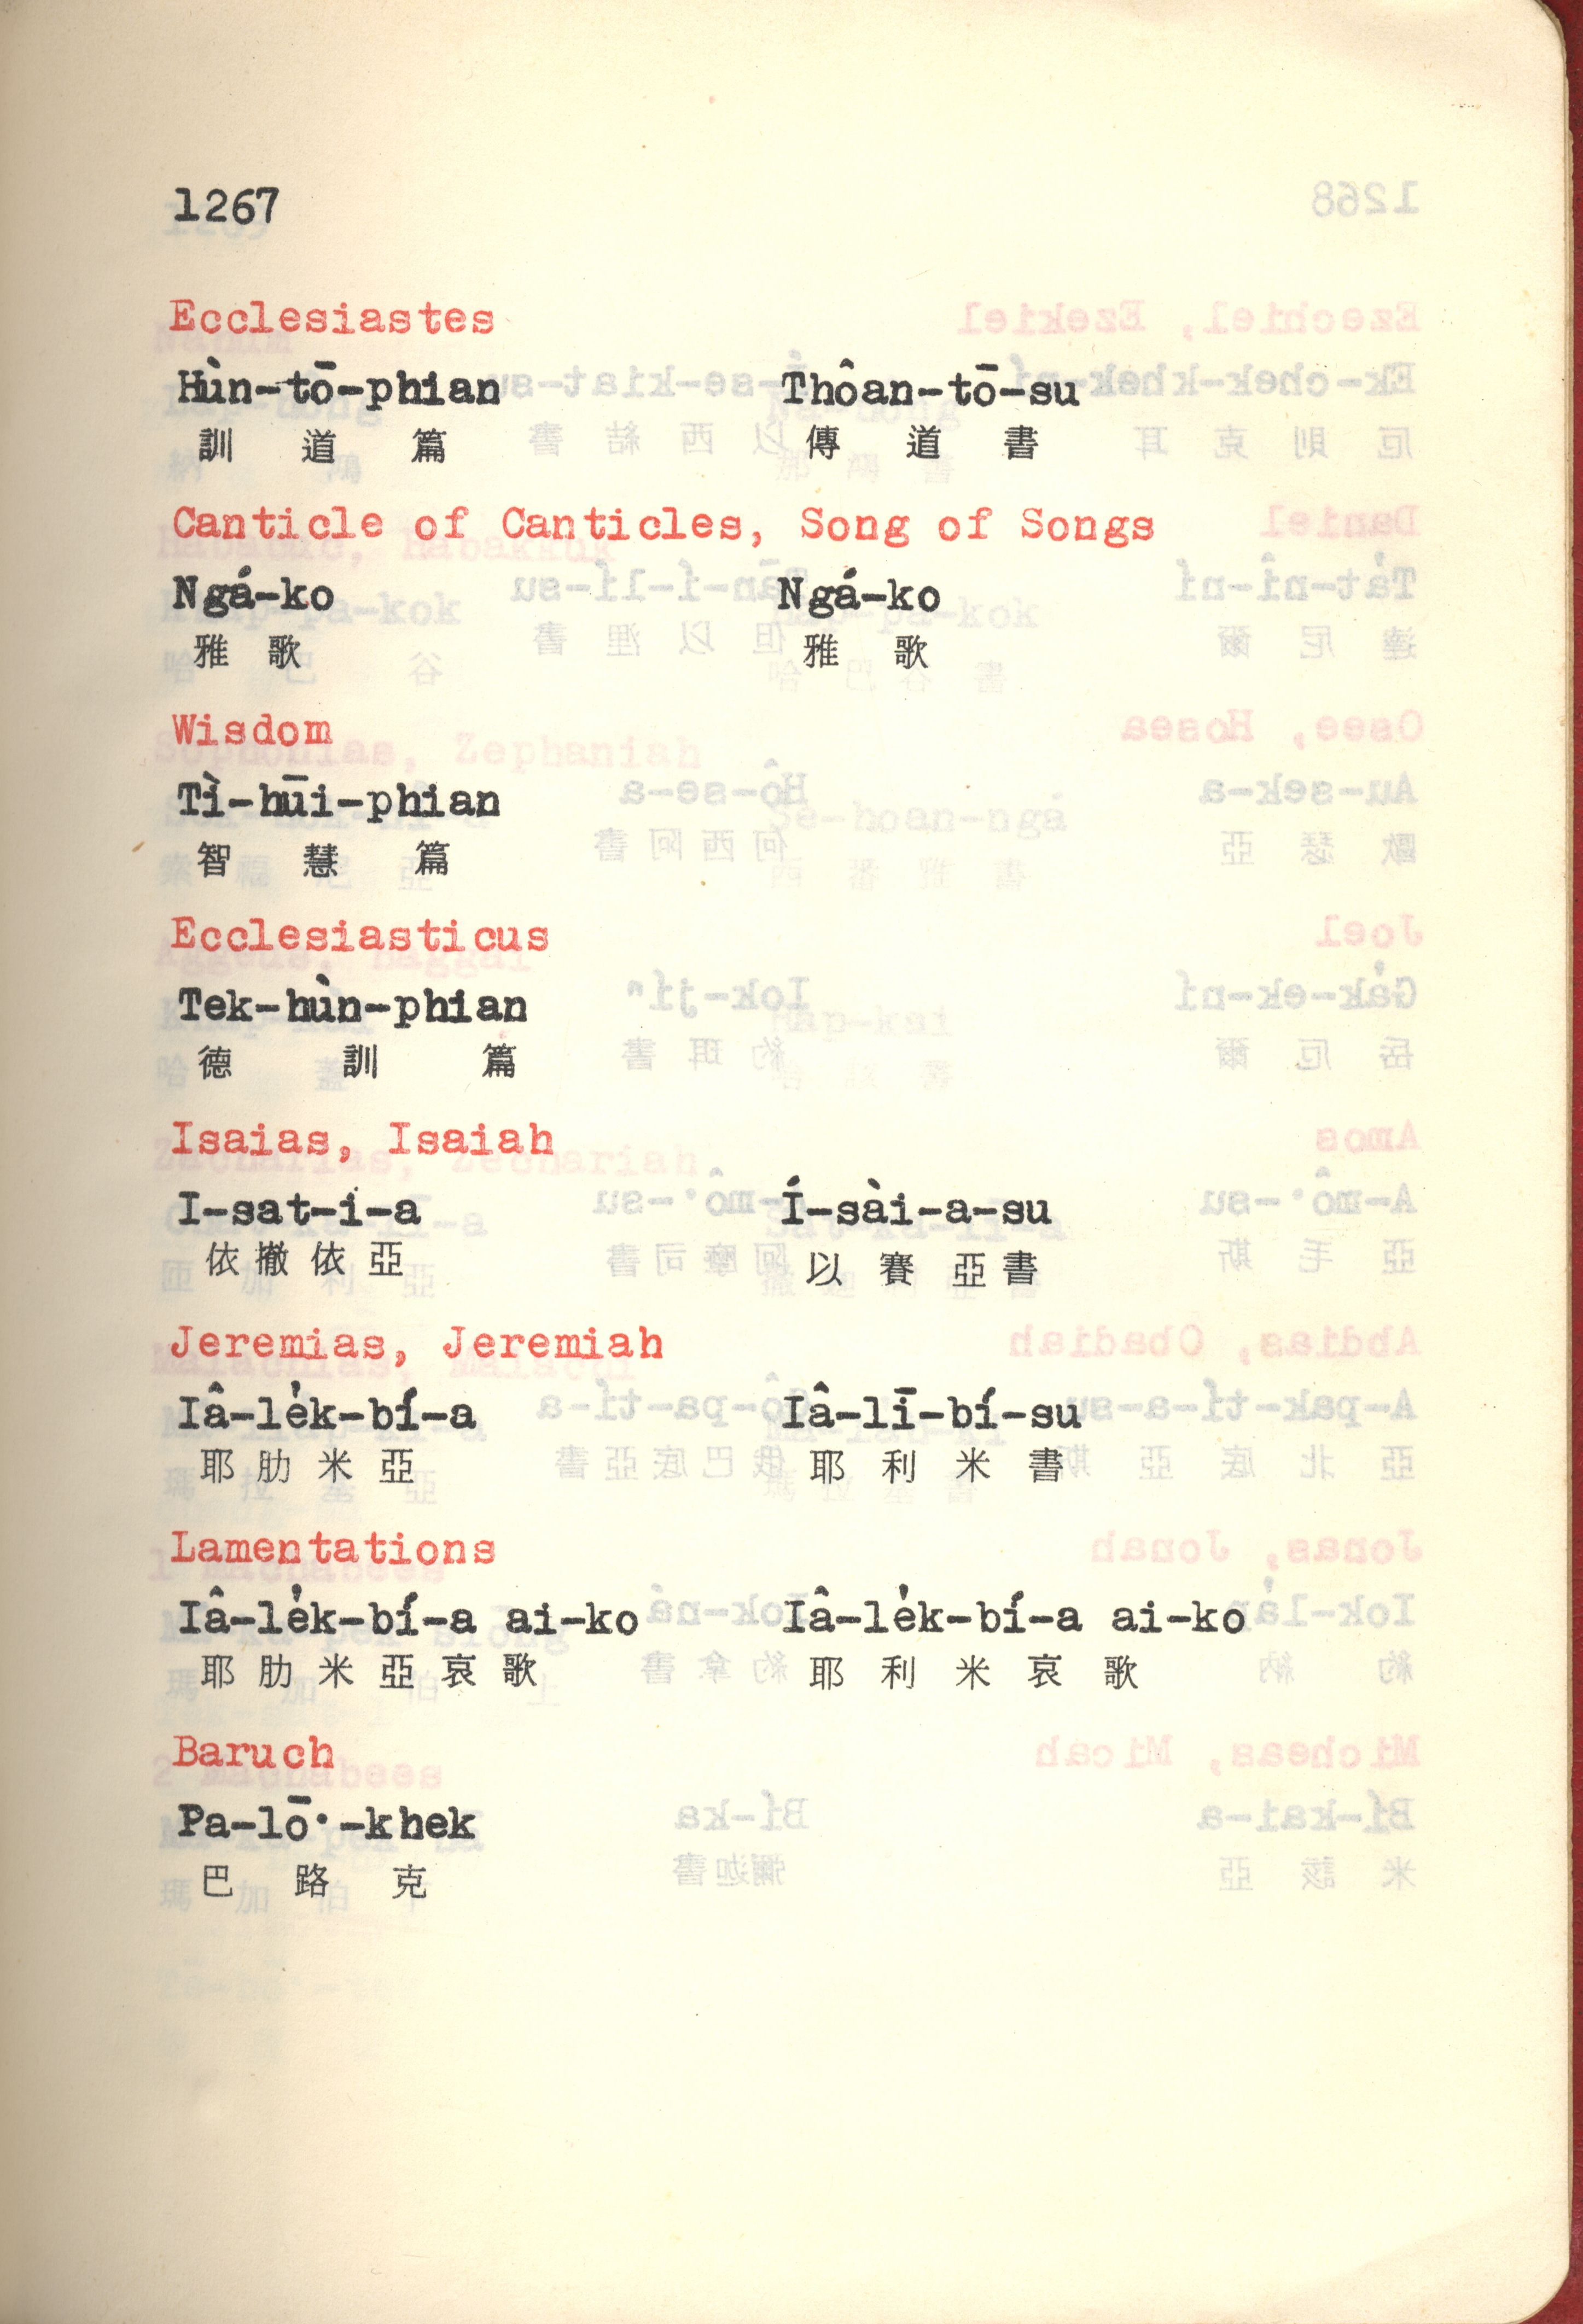 1267
Ecclesiastes
Hùn-tō-phian Thôan-tō-su
訓道篇 傳道書
Canticle of Canticles, Song of Songs
Ngá-ko Ngá-ko
雅歌 雅歌
Wisdom
Tì-hūi-phian
智慧篇
Ecclesiasticus
Tek-hùn-phian
德訓篇
Isaias, Isaiah
I-sat-i-a Í-sài-a-su
依撒依亞 以賽亞書
Jeremias, Jeremiah
Iâ-le̍k-bí-a Iâ-lī-bí-su
耶肋米亞 耶利米書
Lamentations
Iâ-le̍k-bí-a ai-ko Iâ-le̍k-bí-a ai-ko
耶肋米亞哀歌 耶利米哀歌
Baruch
Pa-lō͘-khek
巴路克